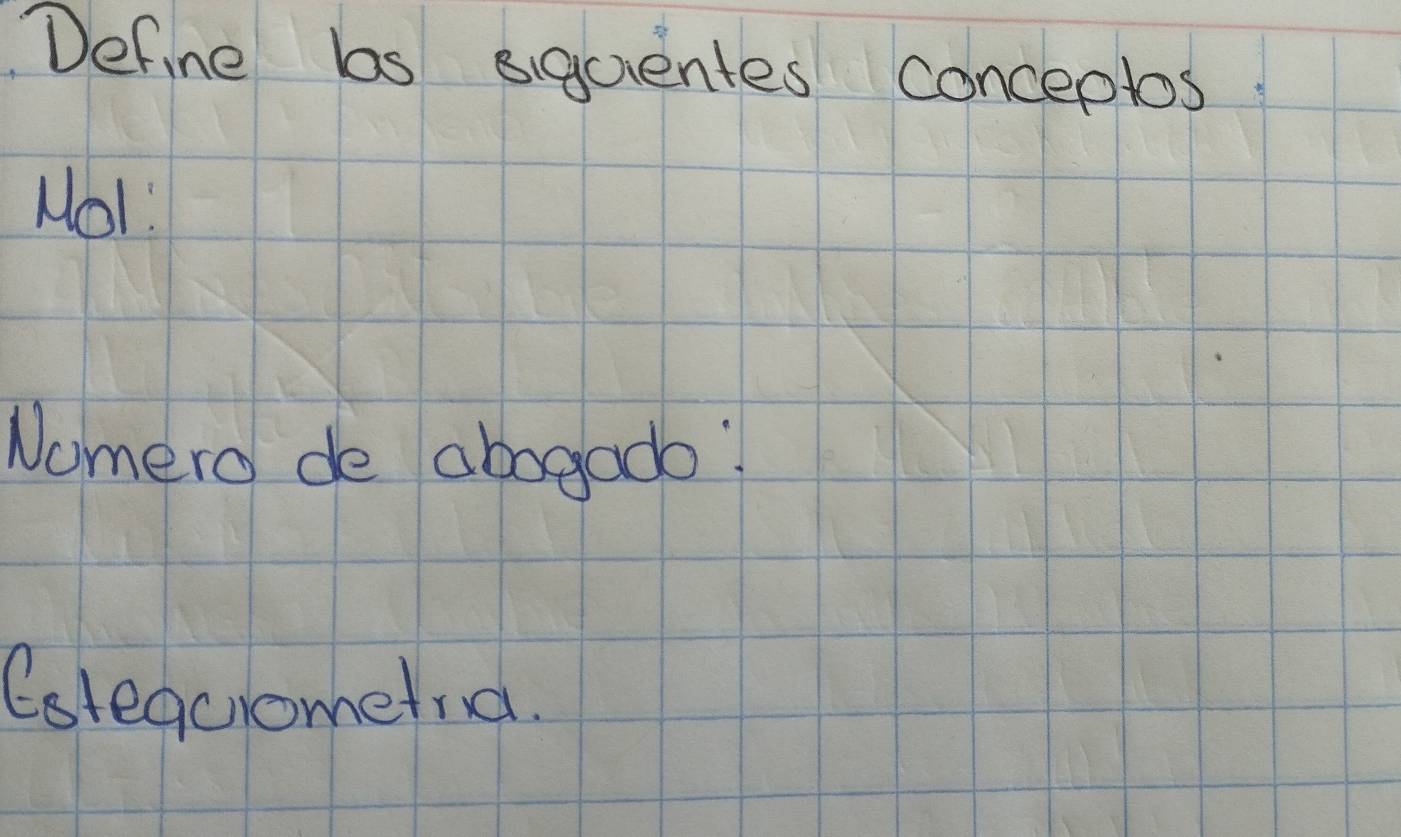 Define los siguientes conceptos:
Mol:
Numero de abogado:
Estequiometria.